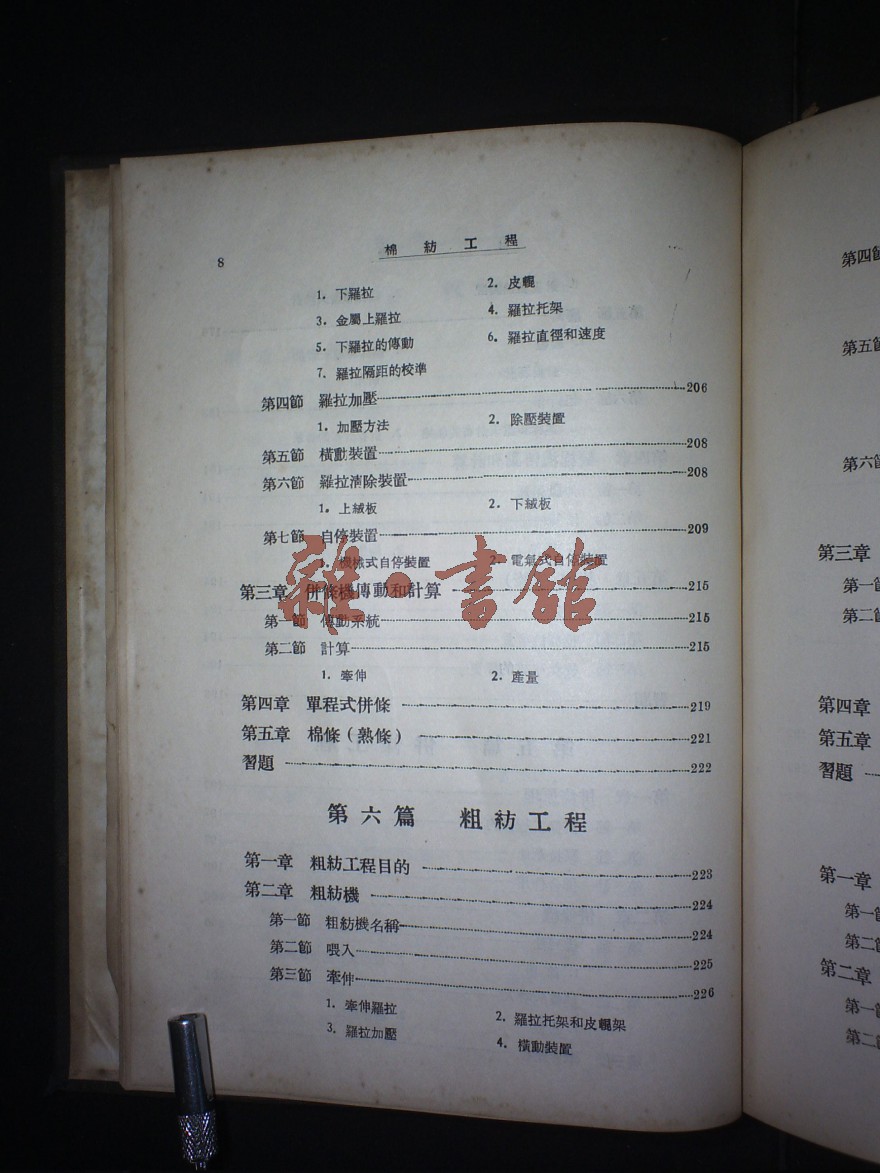 8
棉紡工程
1. 下羅拉 2. 皮輥
3. 金屬上羅拉 4. 羅拉托架
5. 下羅拉的傳動 6. 羅拉直徑和速度
7. 羅拉隔距的校準
第四節 羅拉加壓 206
1. 加壓方法 2. 除壓裝置
第五節 橫動裝置 208
第六節 羅拉清除裝置 208
1. 上絨板 2. 下絨板
第七節 自停裝置 209
1. 機械式自停裝置 2. 電氣式自停裝置
第三章 併條機傳動和計算 215
第一節 傳動系統 215
第二節 計算 215
1. 牽伸 2. 產量
第四章 單程式併條 219
第五章 棉條(熟條) 221
習題 222
第六篇 粗紡工程
第一章 粗紡工程目的 223
第二章 粗紡機 224
第一節 粗紡機名稱 224
第二節 喂入 225
第三節 牽伸 226
1. 牽伸羅拉 2. 羅拉托架和皮輥架
3. 羅拉加壓 4. 橫動裝置
雜·書館
第四
第五
第六
第三章
第一
第二
第四章
第五章
習題
第一章
第一
第二
第二章
第一
第二